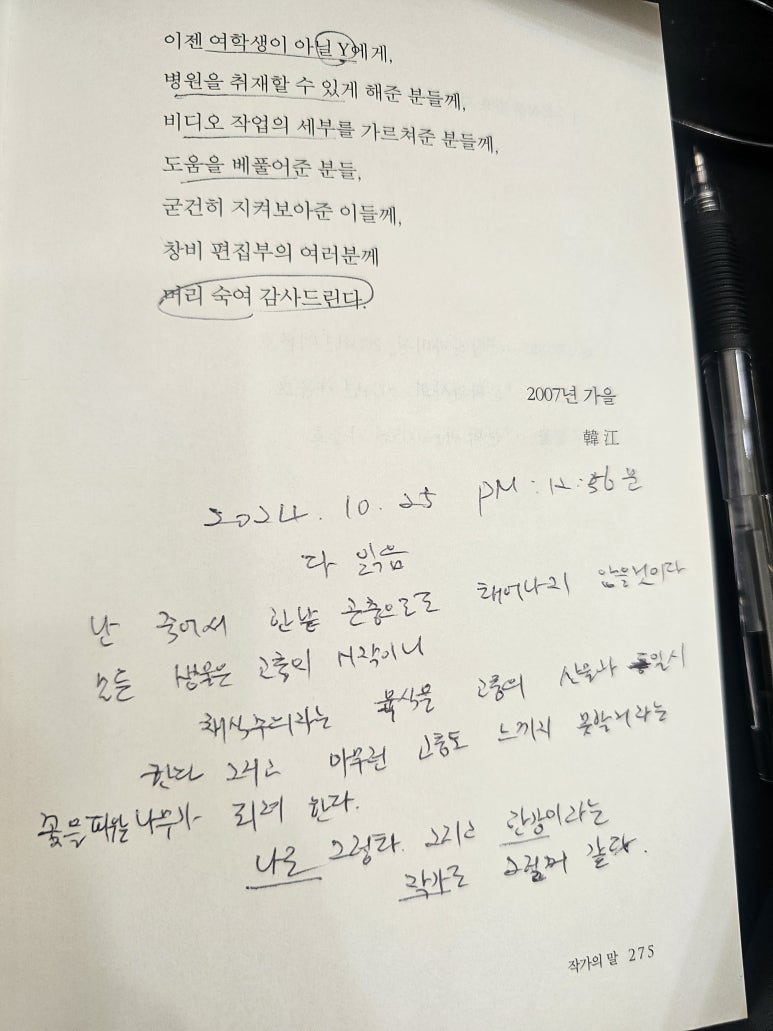 이젠 여학생이 아닐 Y에게,
병원을 취재할 수 있게 해준 분들께,
비디오 작업의 세부를 가르쳐준 분들께,
도움을 베풀어준 분들,
굳건히 지켜보아준 이들께,
창비 편집부의 여러분께
머리 숙여 감사드린다.
2007년 가을
韓江
2024. 10. 25 PM:12:56분
다 읽음
난 죽어서 한낱 곤충으로도 태어나지 않을것이다
모든 생물은 고통의 시작이니
채식주의라는 육식을 고통의 산물과 동일시
한다 그리고 아무런 고통도 느끼지 못할거라는
꽃을피우는 나무가 되려 한다.
나도 그렇다. 그리고 한강이라는
작가도 그럴거 같다.
작가의 말 275